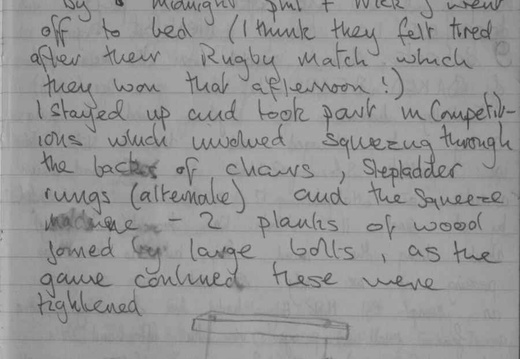 By a midnight Phil & Nick J went
off to bed (I think they felt tired
after their Rugby Match which
they won that afternoon!)
I stayed up and took part in Competit-
ions which involved squeezing through
the backs of chairs, Stepladder
rungs (alternate) and the Squeeze
machine - 2 planks of wood
joined by large bolts, as the
game continued these were
tightened